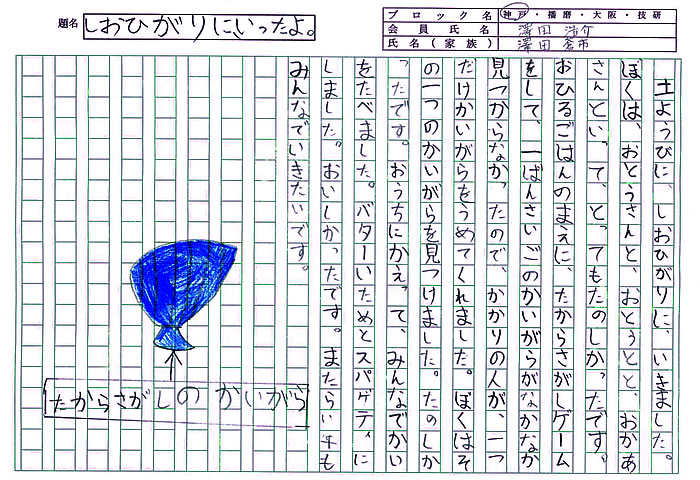 題名 しおひがりに、いったよ。
ブロック名 神戸・播磨・大阪・技研
会員氏名 澤田 浩介
氏名(家族) 澤田 蒼市
土ようびに、しおひがりに、いきました。
ぼくは、おとうさんと、おとうとと、おかあ
さんといって、とってもたのしかったです。
おひるごはんのまえに、たからさがしゲーム
をして、一ばんさいごのかいがらがなかなか
見つからなかったので、かかりの人が、一つ
だけかいがらをうめてくれました。ぼくはそ
の一つのかいがらを見つけました。たのしか
ったです。おうちにかえって、みんなでかい
をたべました。バターいためとスパゲティに
しました。おいしかったです。またらい年も
みんなでいきたいです。
たからさがしのかいがら